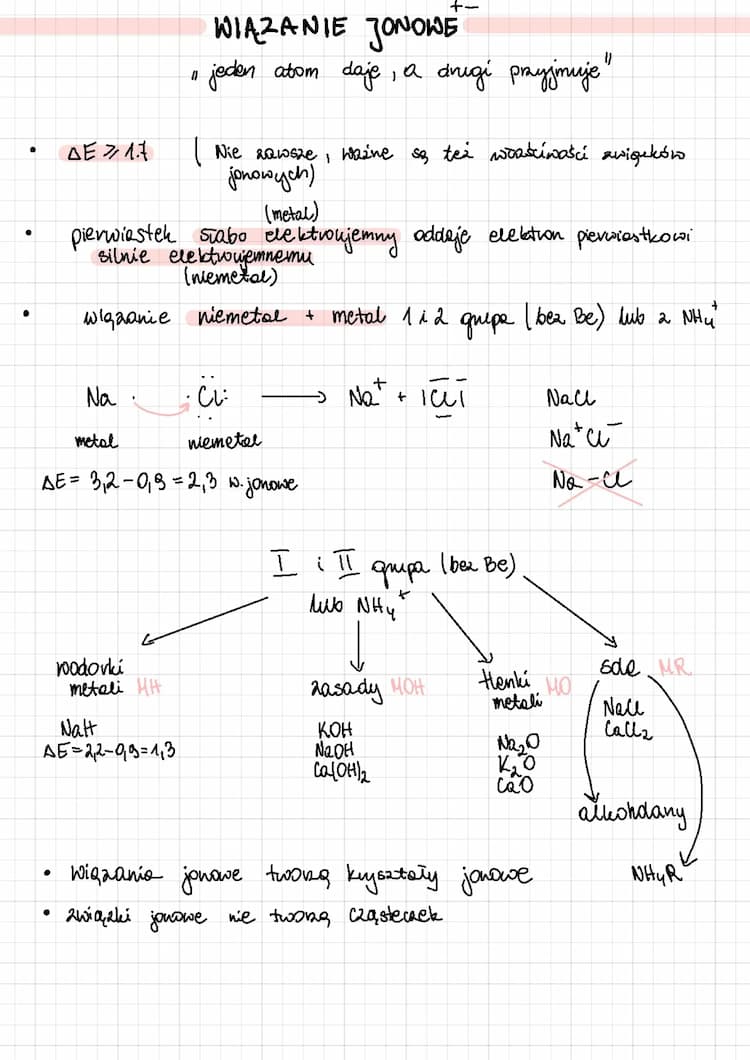 WIĄZANIE JONOWE + −
"jeden atom daje, a drugi przyjmuje"
• ΔE ⩾ 1.7 ( Nie zawsze, ważne są też właściwości związków
jonowych)
(metal)
• pierwiastek słabo elektroujemny oddaje elektron pierwiastkowi
silnie elektroujemnemu
(niemetal)
• wiązanie niemetal + metal 1 i 2 grupa (bez Be) lub z NH₄⁺
Na · · Cl : ⟶ Na⁺ + |Cl| NaCl
metal niemetal Na⁺Cl⁻
ΔE = 3,2 − 0,9 = 2,3 w. jonowe Na − Cl
I i II grupa (bez Be)
lub NH₄⁺
wodorki
metali MH
NaH
ΔE = 2,2 − 0,9 = 1,3
zasady MOH
KOH
NaOH
Ca(OH)₂
tlenki MO
metali
Na₂O
K₂O
CaO
sole MR
NaCl
CaCl₂
alkoholany
NH₄R
• Wiązania jonowe tworzą kryształy jonowe
• związki jonowe nie tworzą cząsteczek